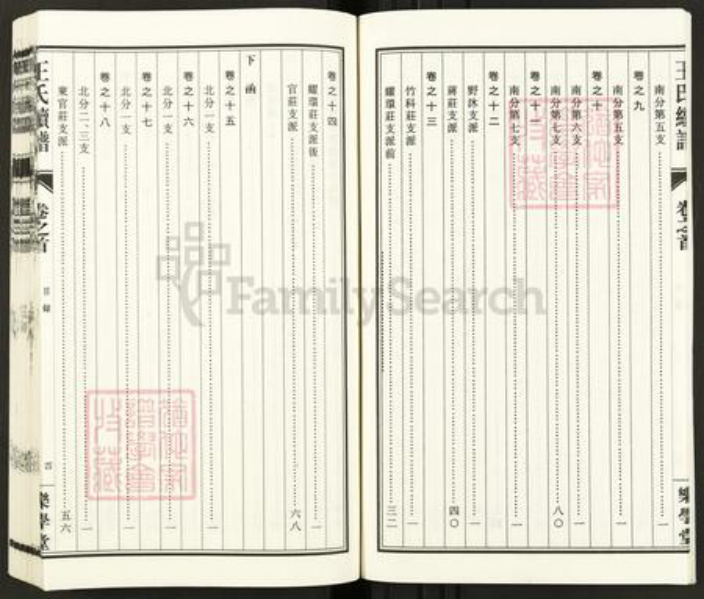 王氏續譜
卷之首
樂學堂
南分第五支 一
卷之九
南分第五支 一
卷之十
南分第六支 一
南分第七支 八〇
卷之十一
南分第七支 一
卷之十二
野沐支派 一
蔣莊支派 四〇
卷之十三
竹科莊支派 一
耀環莊支派前 三二
卷之十四
耀環莊支派後 一
官莊支派 六八
下函
卷之十五
北分一支 一
卷之十六
北分一支 一
卷之十七
北分一支 一
卷之十八
北分二、三支 一
東官莊支派 五六
王氏續譜
卷之首
目錄
四
樂學堂
FamilySearch